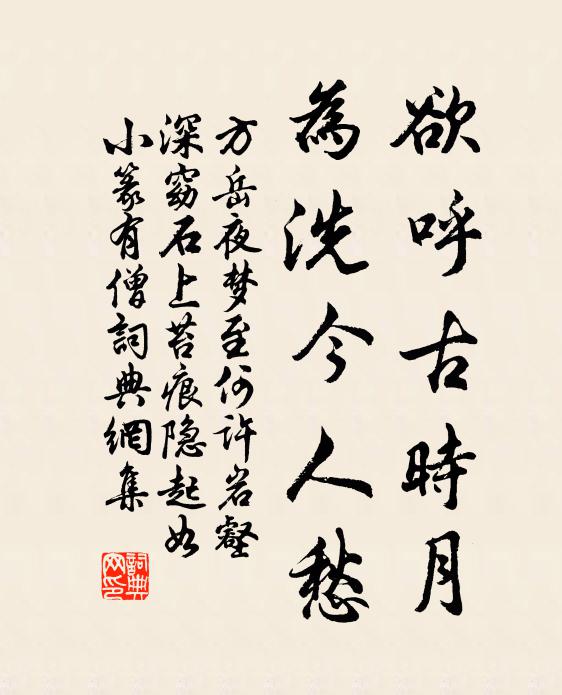 欲呼古時月
為洗今人愁
方岳夜梦至何许岩壑
深窈石上苔痕隐起如
小篆有僧詞典網集
詞典网印